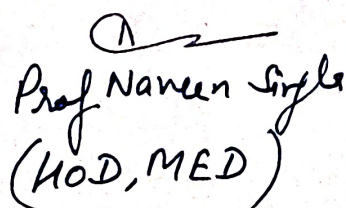 Prof Naveen Singla
(HOD, MED)